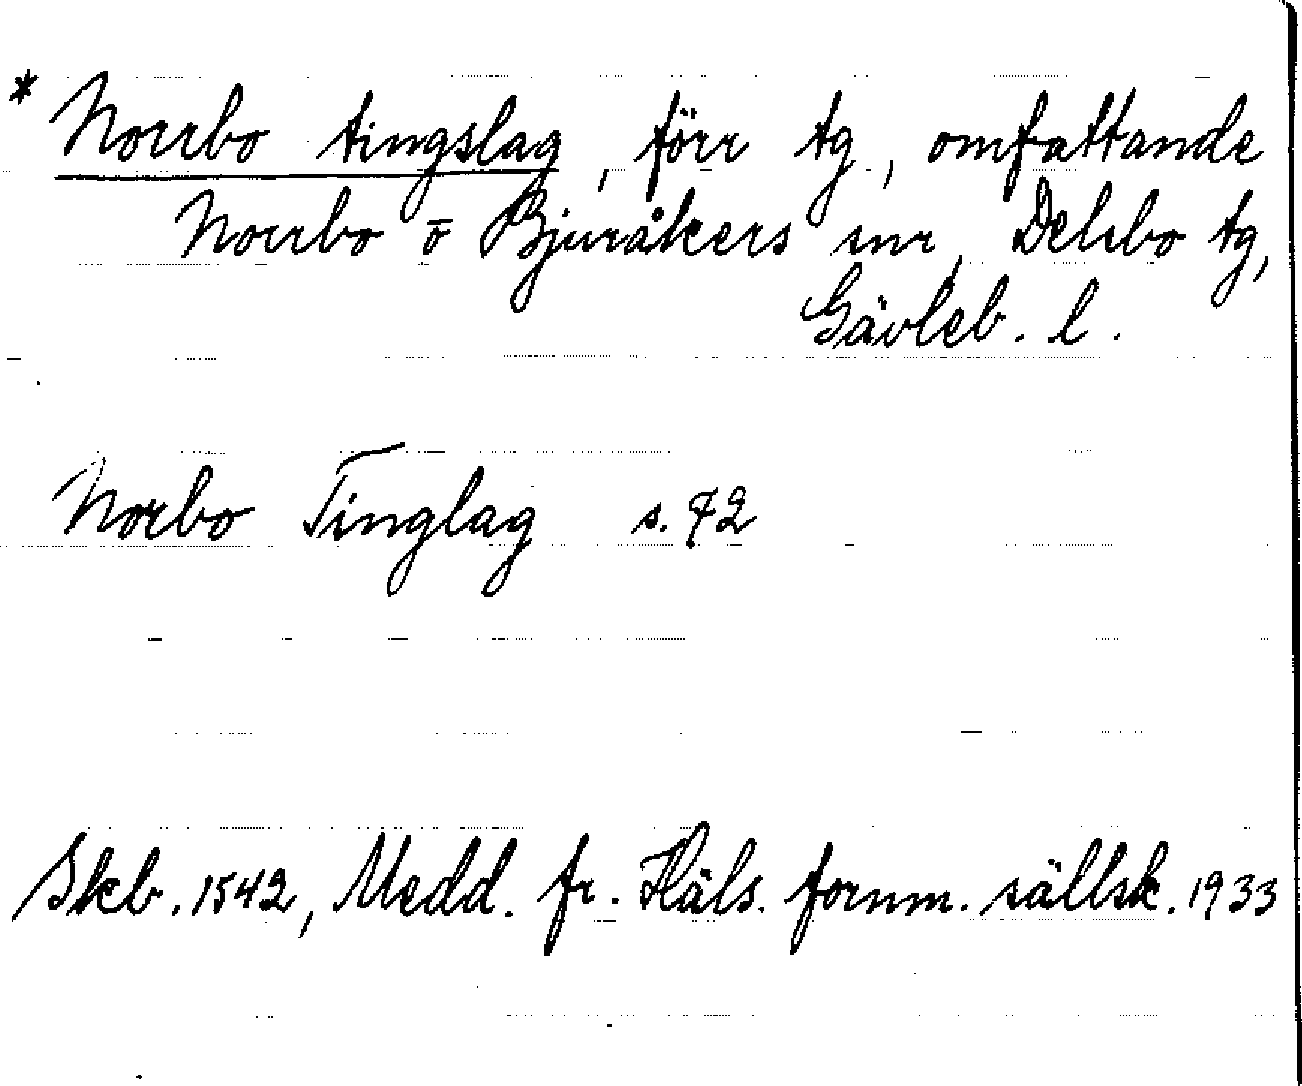 * Norrbo tingslag, förr tg, omfattande
Norrbo o Bjuråkers snr, Delsbo tg,
Gävleb. l.
Norbo Tinglag s. 72
Skb. 1542, Medd. fr. Häls. fornm. sällsk. 1933